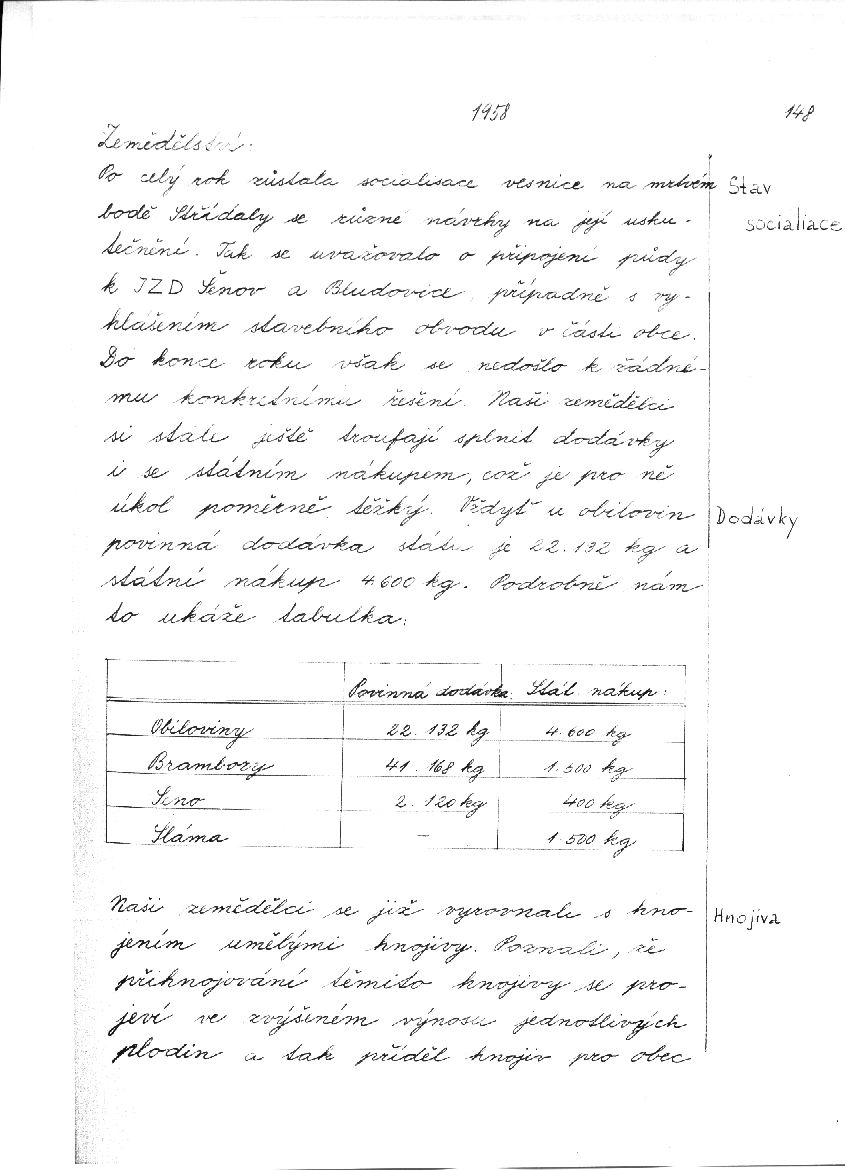 1958
148
Zemědělství.
Po celý rok zůstala socialisace vesnice na mrtvém
Stav
bodě Střídaly se různé návrhy na její usku-
socialiace
tečnění. Tak se uvažovalo o připojení půdy
k JZD Šenov a Bludovice, případně s vy-
hlášením stavebního obvodu v části obce.
Do konce roku však se nedošlo k žádné-
mu konkretnímu řešení. Naši zemědělci
si stále ještě troufají splnit dodávky
i se státním nákupem, což je pro ně
úkol poměrně těžký. Vždyť u obilovin
Dodávky
povinná dodávka státu je 22.132 kg a
státní nákup 4.600 kg. Podrobně nám
to ukáže tabulka:
Povinná dodávka: Stát. nákup:
Obiloviny 22.132 kg 4.600 kg
Brambory 41.168 kg 1.500 kg
Seno 2.120 kg 400 kg
Sláma — 1.500 kg
Naši zemědělci se již vyrovnali s hno-
Hnojiva
jením umělými hnojivy. Poznali, že
přihnojování těmito hnojivy se pro-
jeví ve zvýšeném výnosu jednotlivých
plodin a tak příděl hnojiv pro obec